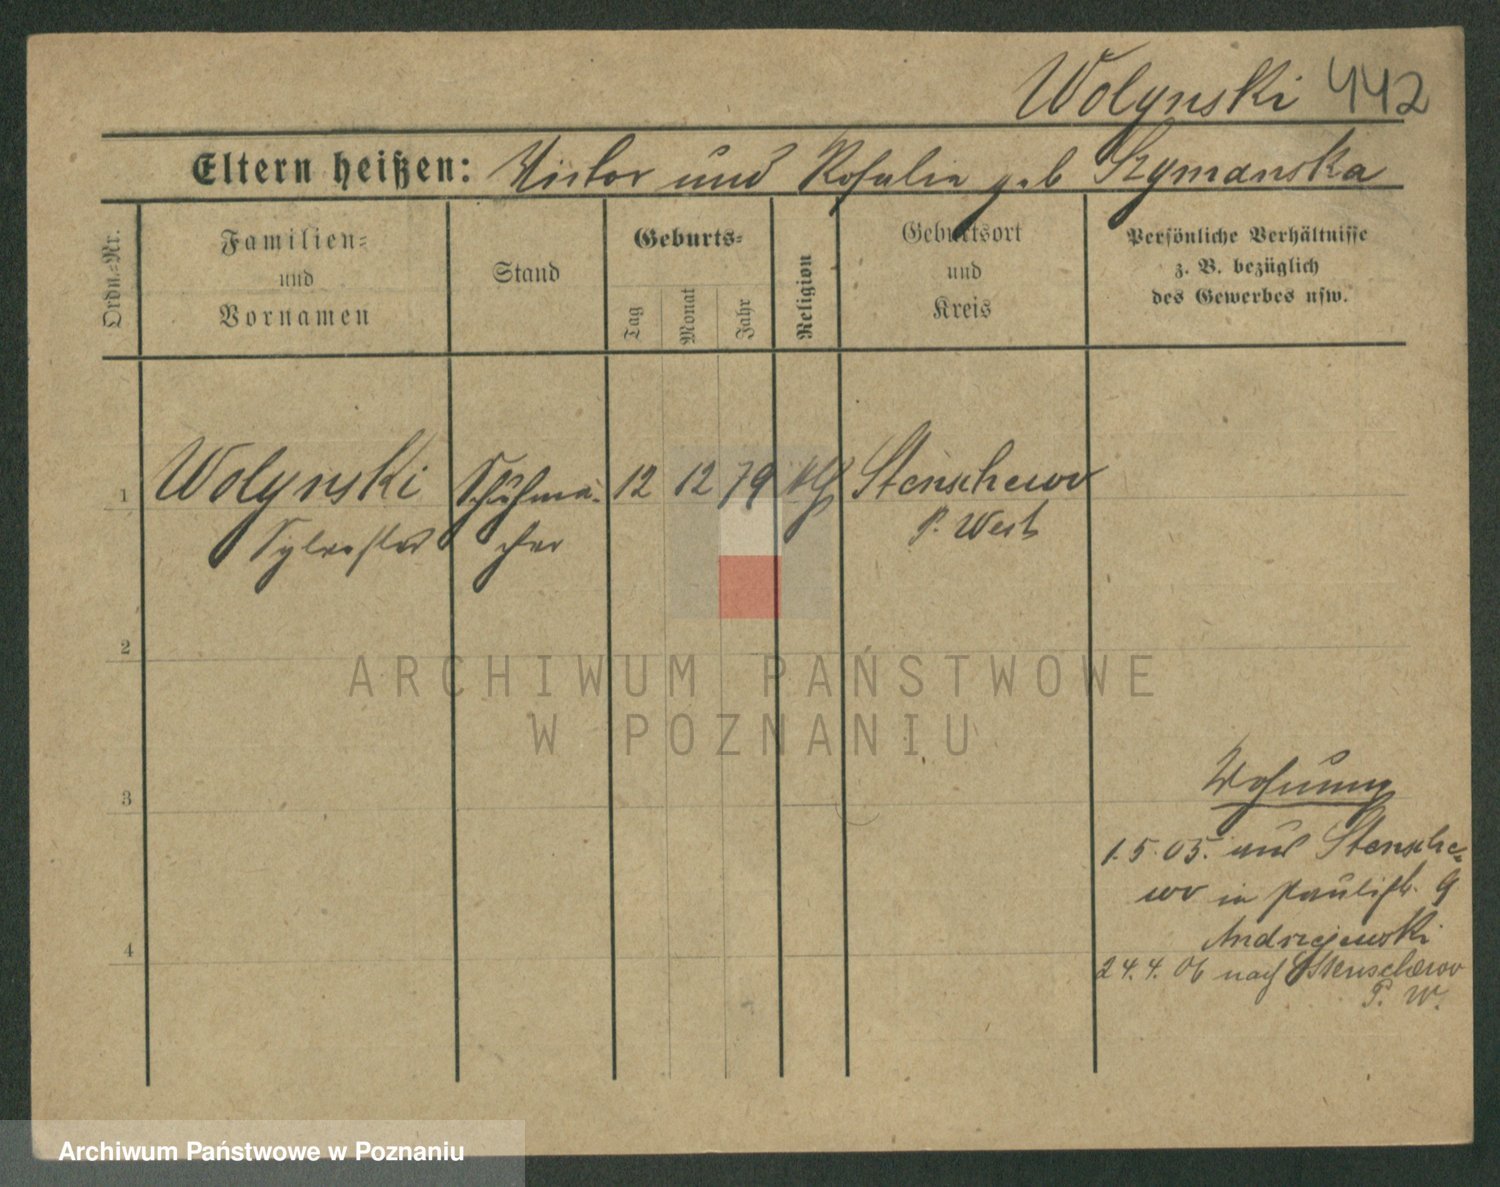 Wolynski 442
Eltern heißen: Victor und Rosalie geb Szymanska
Ordn.-Nr.
Familien-
und
Vornamen
Stand
Geburts-
Tag
Monat
Jahr
Religion
Geburtsort
und
Kreis
Persönliche Verhältnisse
z. B. bezüglich
des Gewerbes usw.
1 Wolynski Schuhma- 12 12 79 Stenschewo
Sylvester cher P. West
2
3
4
Wohnung
1.5.05. aus Stensche-
wo in Paulistr. 9
Andrzejewski
24.4.06 nach Stenschewo
P. W.
ARCHIWUM PAŃSTWOWE
W POZNANIU
Archiwum Państwowe w Poznaniu